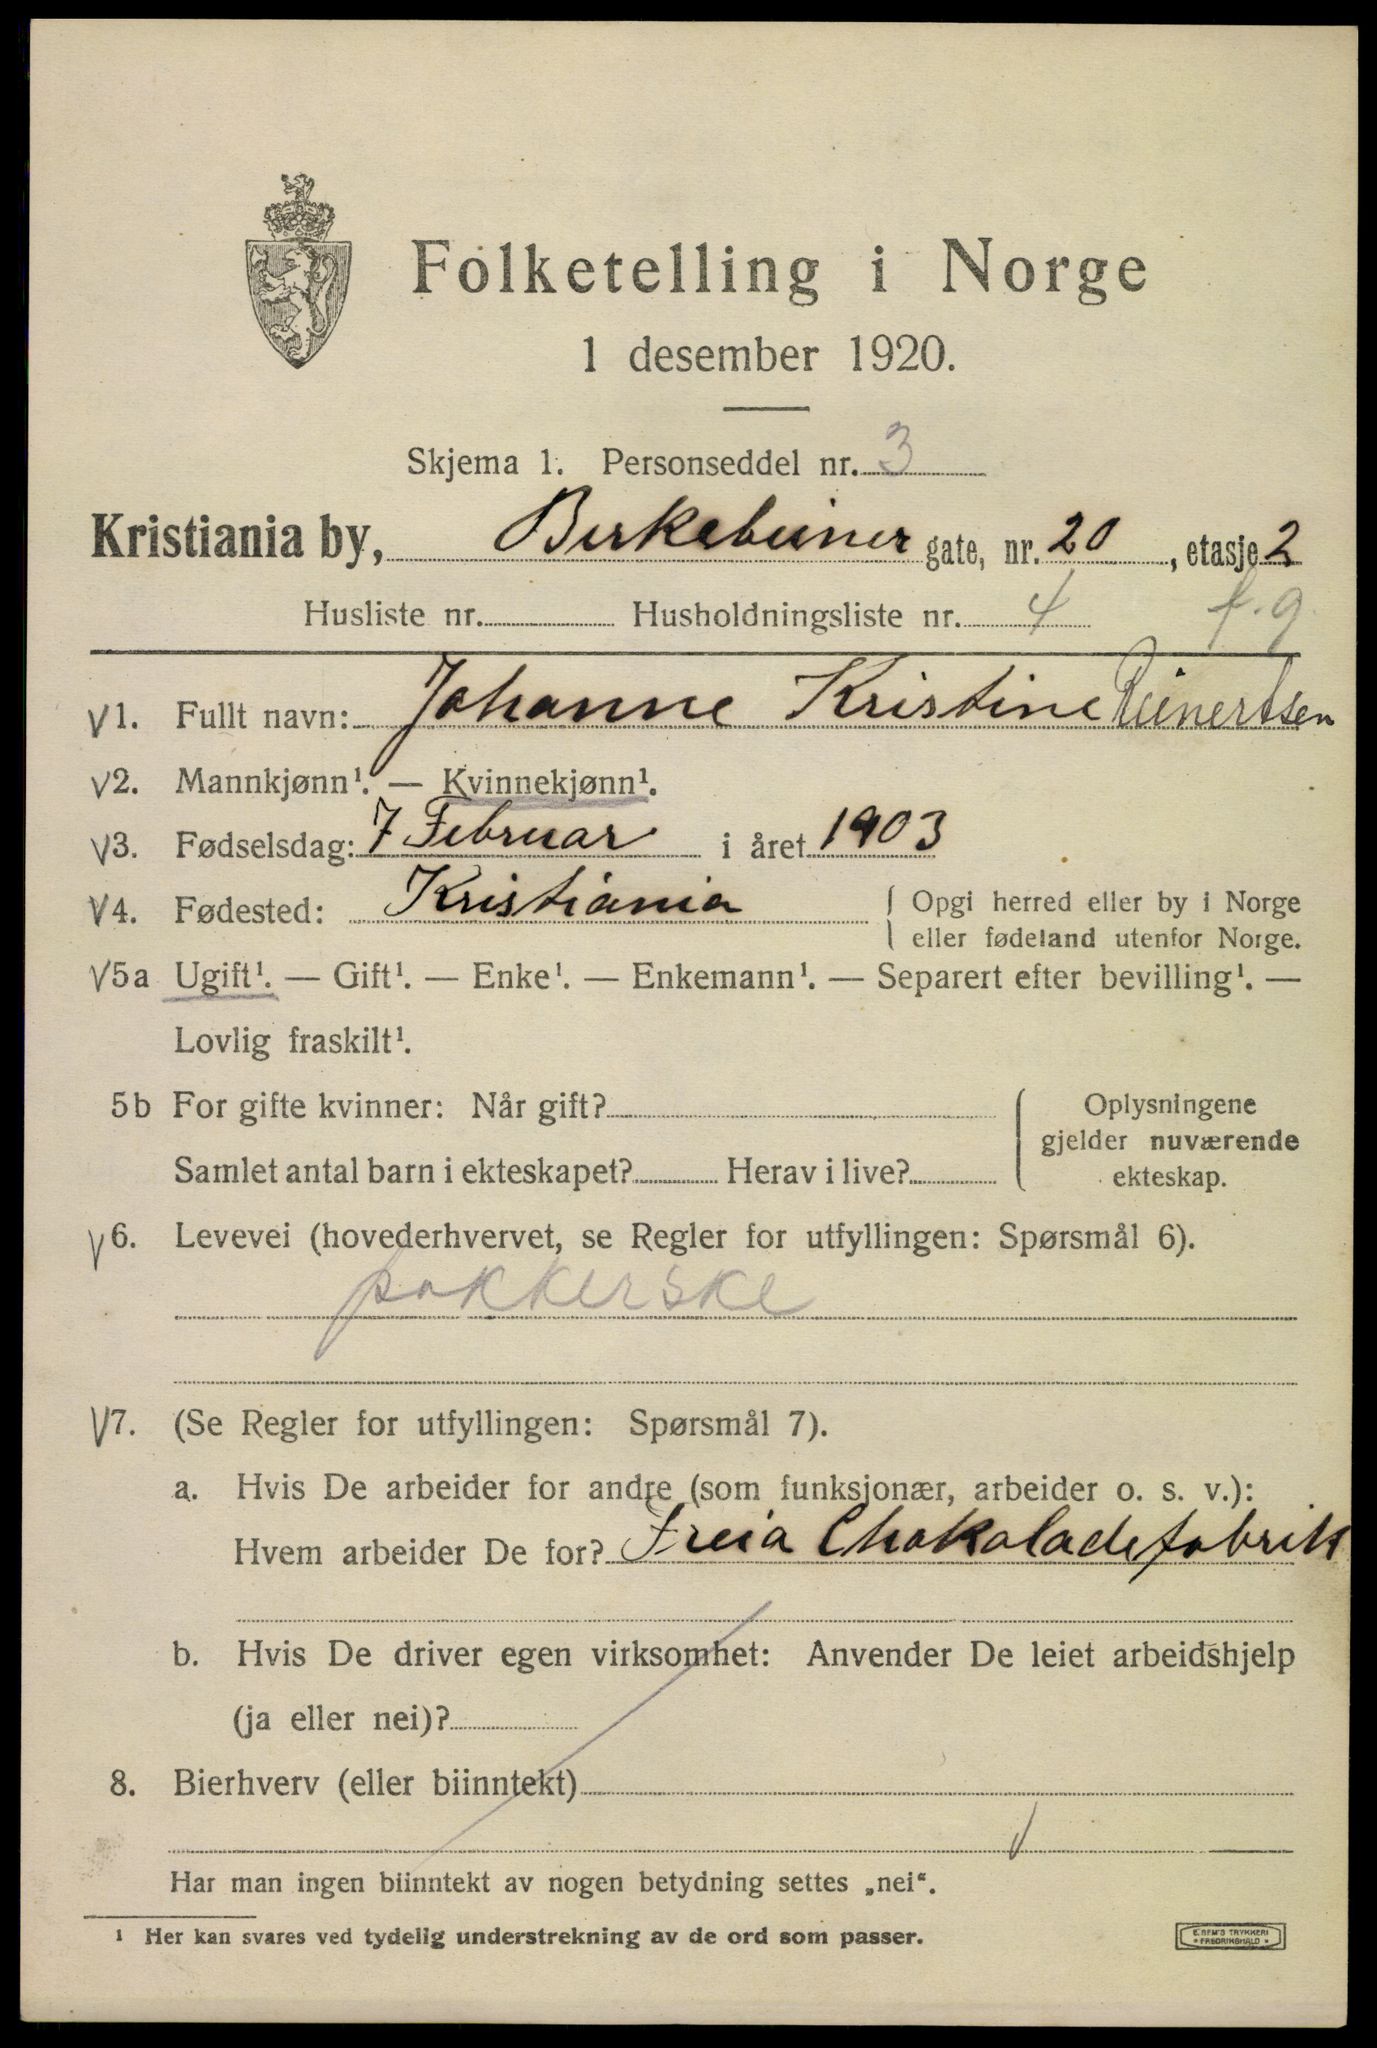 Folketelling i Norge
1 desember 1920.
Skjema 1. Personseddel nr. 3
Kristiania by, Birkebeiner gate, nr. 20, etasje 2
Husliste nr. Husholdningsliste nr. 4 f.g.
V1. Fullt navn: Johanne Kristine Reinertsen
V2. Mannkjønn¹. — Kvinnekjønn¹.
V3. Fødselsdag: 7 Februar i året 1903
V4. Fødested: Kristiania { Opgi herred eller by i Norge
eller fødeland utenfor Norge.
V5a Ugift¹. — Gift¹. — Enke¹. — Enkemann¹. — Separert efter bevilling¹. —
Lovlig fraskilt¹.
5b For gifte kvinner: Når gift? { Oplysningene
gjelder nuværende
Samlet antal barn i ekteskapet? Herav i live? ekteskap.
V6. Levevei (hovederhvervet, se Regler for utfyllingen: Spørsmål 6).
pakkerske
V7. (Se Regler for utfyllingen: Spørsmål 7).
a. Hvis De arbeider for andre (som funksjonær, arbeider o. s. v.):
Hvem arbeider De for? Freia Chokoladefabrik
b. Hvis De driver egen virksomhet: Anvender De leiet arbeidshjelp
(ja eller nei)?
8. Bierhverv (eller biinntekt)
Har man ingen biinntekt av nogen betydning settes „nei“.
¹ Her kan svares ved tydelig understrekning av de ord som passer.
E. SEM'S TRYKKERI
* FREDRIKSHALD *